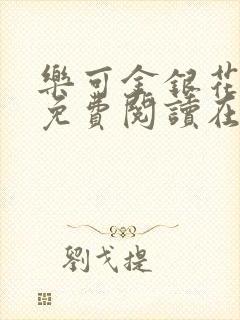 樂可金銀花
免費閱讀在
劉戈提